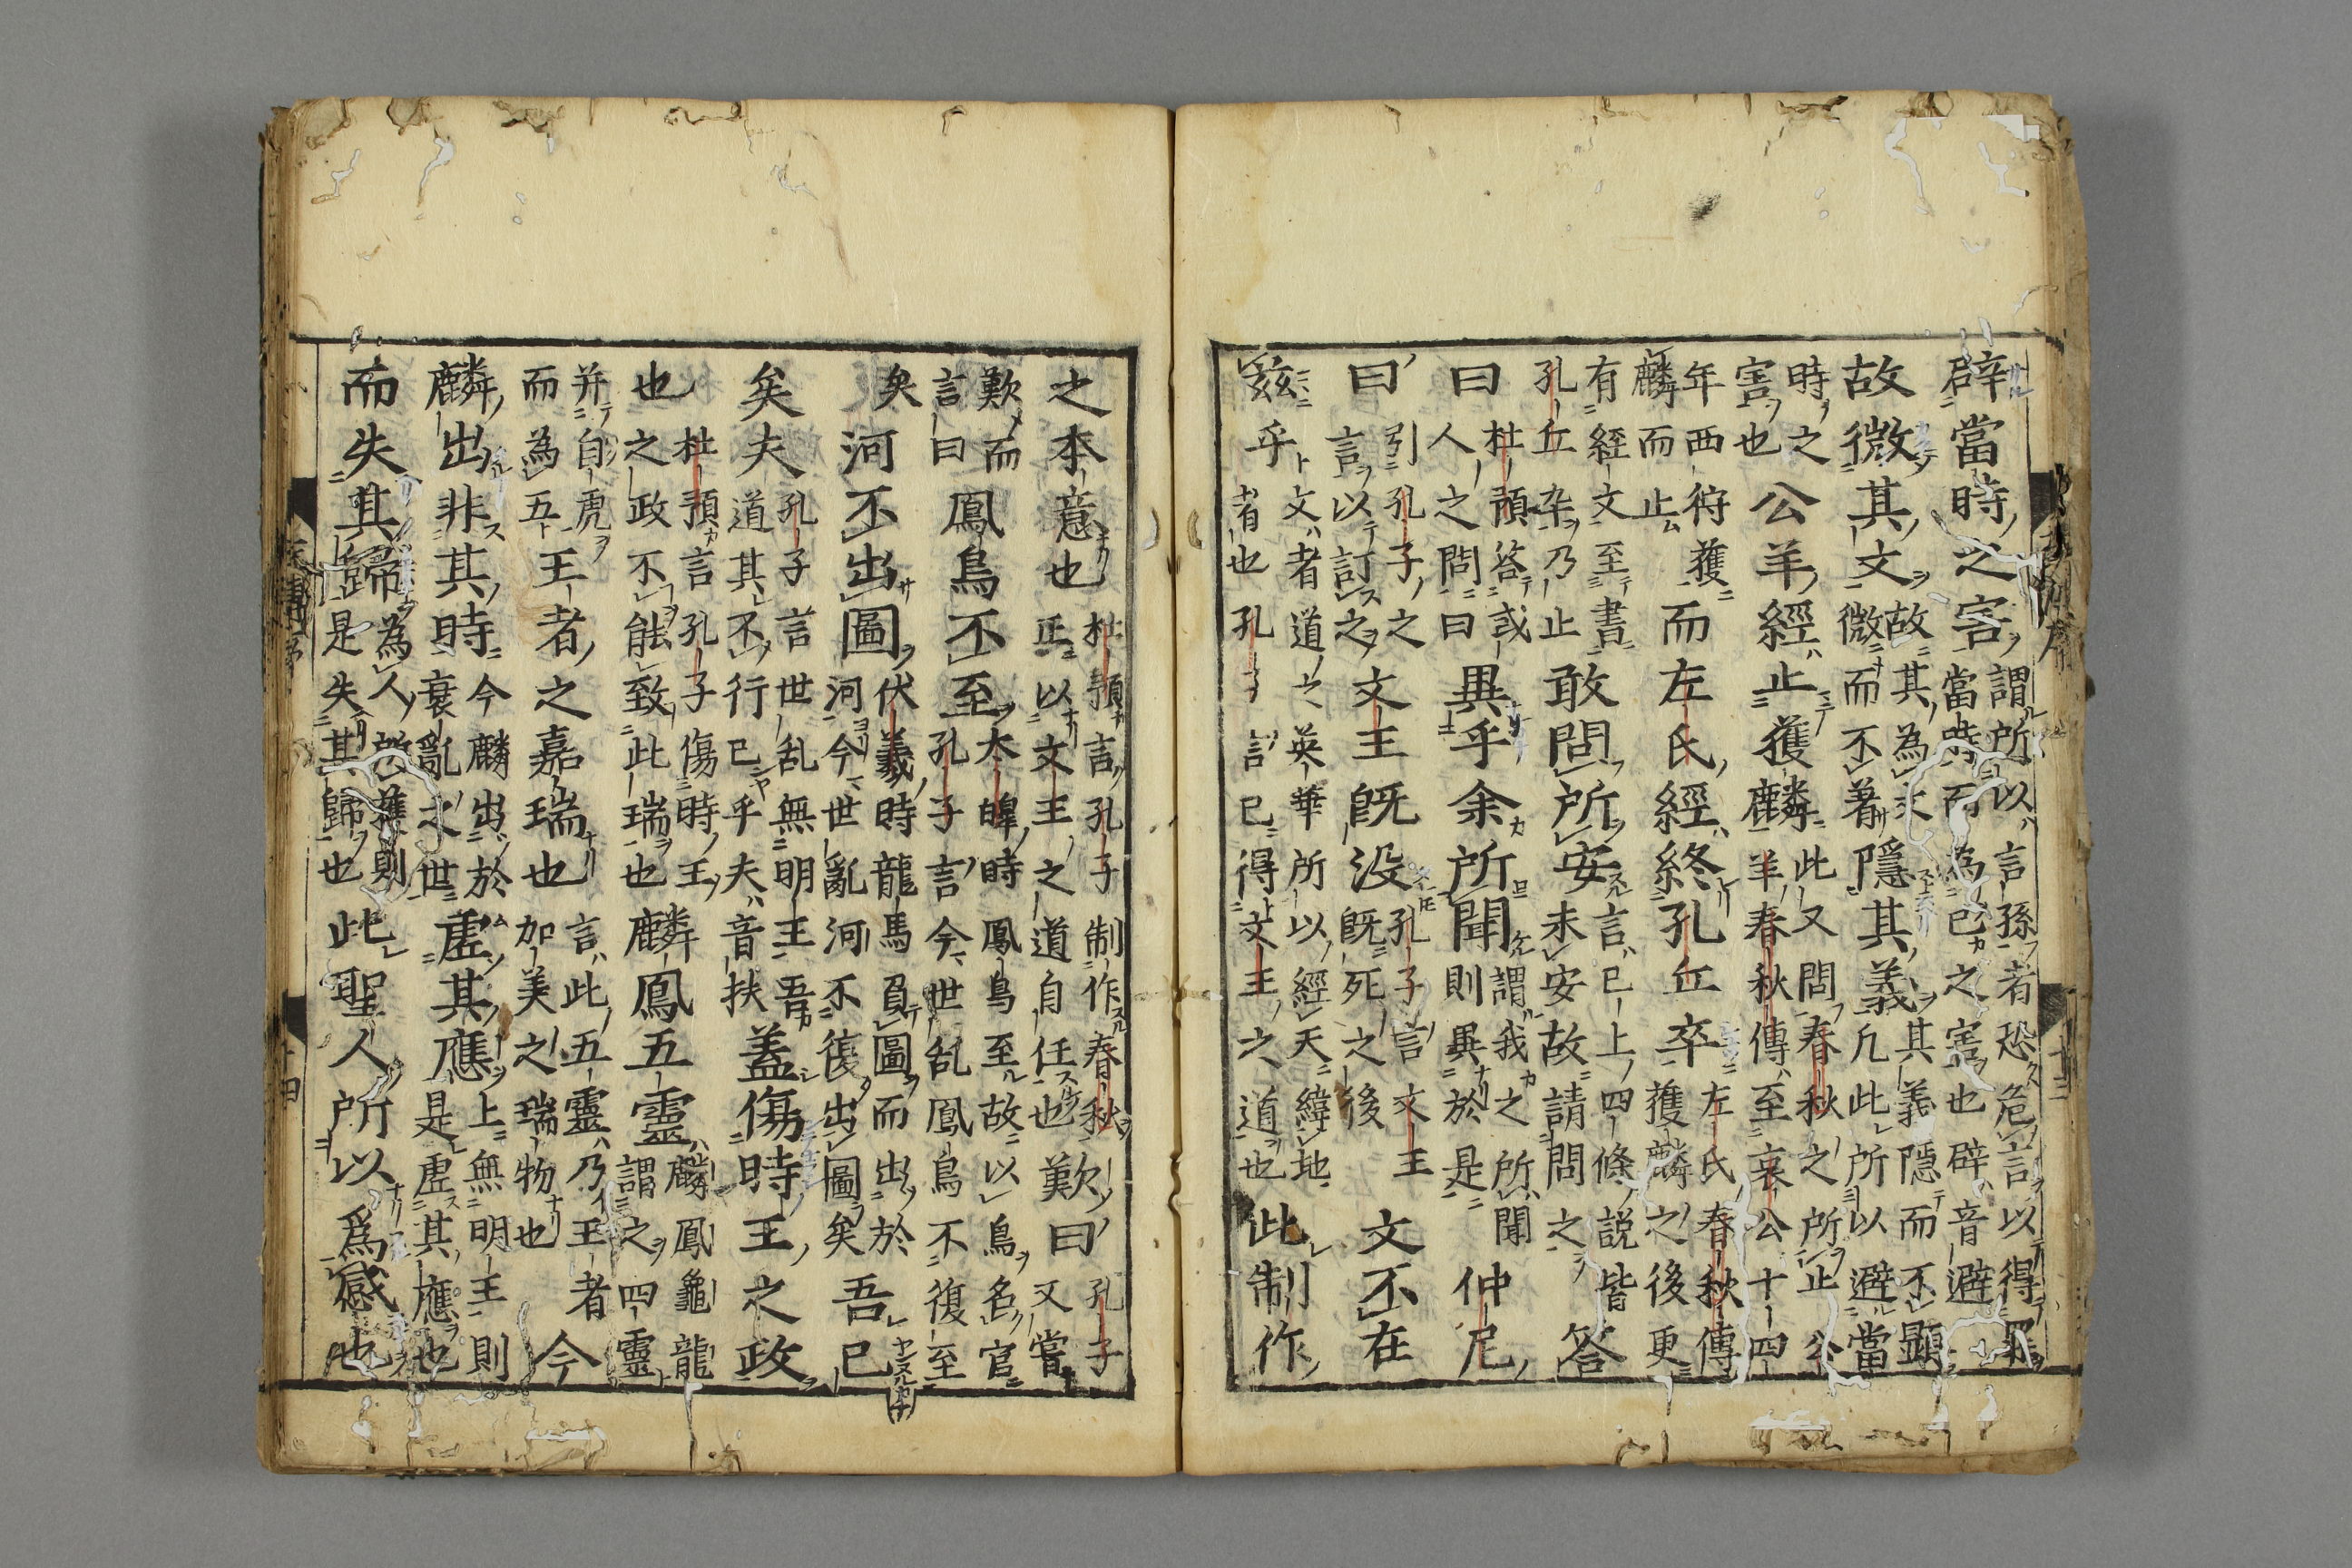 辟當時之害謂所以言孫者恐危言以得罪當時而為己之害也辟音避
故微其文故其為文微而不著隱其義其義隱而不顯凡此所以避當
時之害也公羊經止獲麟此又問春秋之所止公羊春秋傳至哀公十四
年西狩獲麟而止而左氏經終孔丘卒左氏春秋傳獲麟之後更
有經文至書孔丘卒乃止敢問所安言已上四條説皆未安故請問之答
曰杜預答或人之問曰異乎余所聞謂我之所聞則異於是仲尼
曰引孔子之言以訂之文王既没孔子言文王既死之後文不在
茲乎文者道之英華所以經天緯地者也孔子言已得文王之道也此制作
之本意也杜預言孔子制作春秋正以文王之道自任也歎曰孔子又嘗
歎而言曰鳳鳥不至太皥時鳳鳥至故以鳥名官孔子言今世乱鳳鳥不復至
矣河不出圖伏羲時龍馬負圖而出於河今世亂河不復出圖矣吾已
矣夫孔子言世乱無明王吾道其不行已乎夫音扶蓋傷時王之政
也杜預言孔子傷時王之政不能致此瑞也麟鳳五靈麟鳳龜龍謂之四靈
并自虎而為五王者之嘉瑞也言此五靈乃王者加美之瑞物也今
麟出非其時今麟出於衰亂之世虛其應上無明王則是虛其應也
而失其歸為人所獲則是失其歸也此聖人所以爲感也